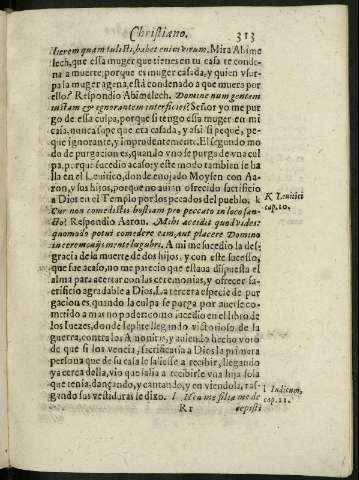 Christiano. 313
lierem quam tulisti, habet enim virum. Mira Abime
lech, que essa muger que tienes en tu casa te conde-
na a muerte; porque es muger casada, y quien vsur-
pa la muger agena, està condenado a que muera por
ello? Respondio Abimelech. Domine num gentem
iustam & ignorantem interficies? Señor yo me pur
go de essa culpa, porque si tengo essa muger en mi
casa, nunca supe que era casada, y assi si pequè, pe-
que ignorante, y imprudentemente. El segundo mo
do de purgacion es, quando vno se purgo de vna cul
pa, porque sucedio acaso; y este modo tambien se ha
lla en el Leuitico, donde enojado Moysen con Aa-
ron, y sus hijos, porque no auian ofrecido sacrificio
a Dios en el Templo por los pecados del pueblo. k
Cur non comedistis hostiam pro peccato in loco san-
cto? Respondio Aaron. Mihi accidit quod vides:
quomodo potui comedere eam, aut placere Domino
in ceremonijs mente lugubri. A mi me sucedio la des
gracia de la muerte de dos hijos, y con este sucesso,
que fue acaso, no me parecio que estaua dispuesta el
alma para acertar con las ceremonias, y ofrecer sa-
crificio agradable a Dios. La tercera especie de pur
gacion es quando la culpa se purga por auerse co-
metido a mas no poder: como sucedio en el libro de
los Iuezes, donde Iephte llegando victorioso de la
guerra, contra los Amonitas, y auiendo hecho voto
de que si los vencia, sacrificaria a Dios la primera
persona que de su casa le saliesse a recibir, llegando
ya cerca della, vio que salia a recibirle vna hija sola
que tenia, dançando, y cantando, y en viendola, ras-
gando sus vestiduras le dixo. l Heu me filia me de
Rr cepisti
K Leuitici
cap. 10.
l Iudicum,
cap. 11.